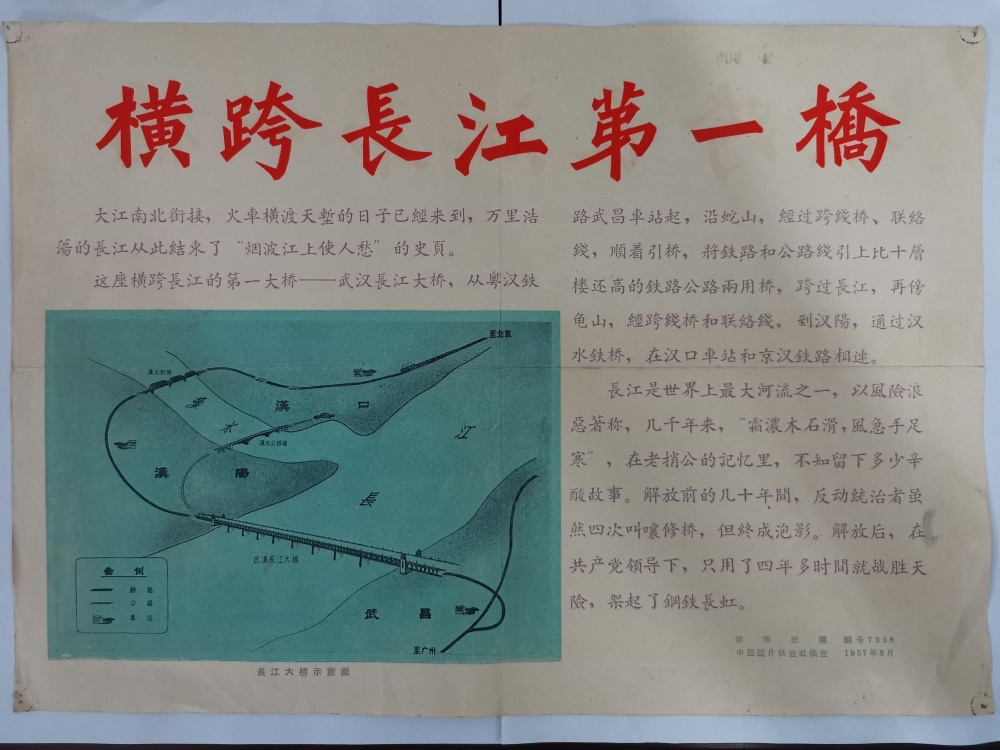 橫跨長江第一橋
大江南北銜接，火車橫渡天塹的日子已經来到，万里浩
蕩的長江从此結束了“烟波江上使人愁”的史頁。
这座橫跨長江的第一大桥——武汉長江大桥，从粵汉鉄
路武昌車站起，沿蛇山，經过跨綫桥、联絡
綫，順着引桥，將鉄路和公路綫引上比十層
楼还高的鉄路公路兩用桥，跨过長江，再傍
龟山，經跨綫桥和联絡綫，到汉陽，通过汉
水鉄桥，在汉口車站和京汉鉄路相連。
長江是世界上最大河流之一，以風險浪
惡著称，几千年来，“霜濃木石滑，風急手足
寒”，在老梢公的記忆里，不知留下多少辛
酸故事。解放前的几十年間，反动統治者虽
然四次叫嚷修桥，但終成泡影。解放后，在
共产党領导下，只用了四年多时間就战胜天
險，架起了鋼鉄長虹。
至北京
漢水鉄橋
漢水
漢口
漢水公路橋
江
漢陽
長
武漢長江大橋
圖例
鉄路
公路
車站
武昌
至广州
長江大桥示意圖
新華社稿 編号7228
中国圖片供应社供应 1957年8月